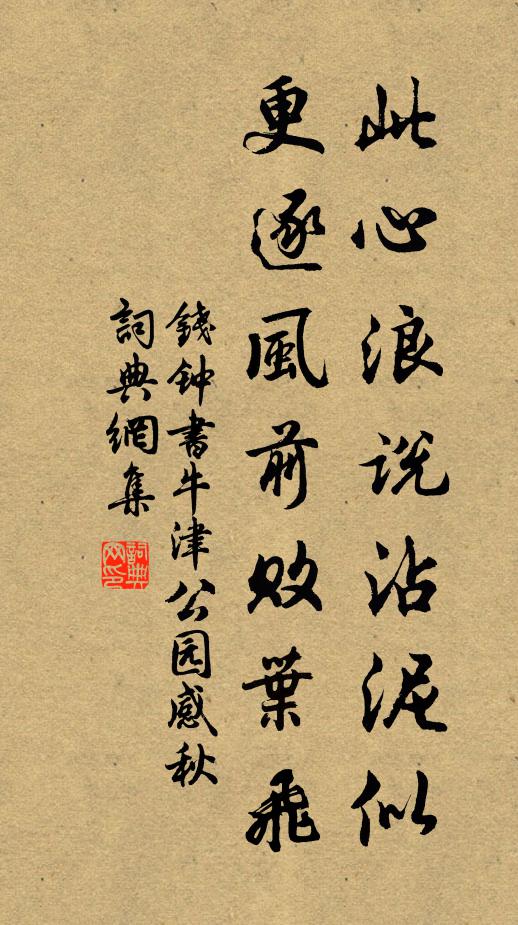 此心浪说沾泥似
更逐風前败葉飛
錢钟書牛津公园感秋
詞典網集
詞典网印